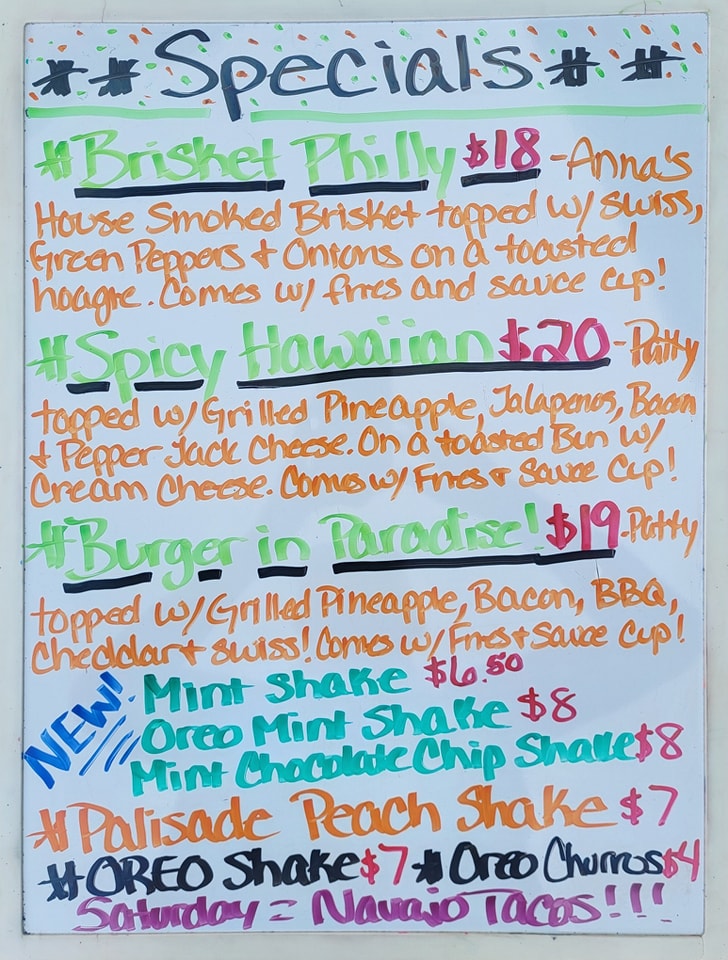 **Specials**
#Brisket Philly $18 - Anna's
House Smoked Brisket topped w/ swiss,
Green Peppers + Onions on a toasted
hoagie. Comes w/ fries and sauce cup!
#Spicy Hawaiian $20 - Patty
topped w/ Grilled Pineapple, Jalapenos, Bacon
+ Pepper Jack Cheese. On a toasted Bun w/
Cream Cheese. Comes w/ Fries + Sauce Cup!
#Burger in Paradise! $19 - Patty
topped w/ Grilled Pineapple, Bacon, BBQ,
Cheddar + swiss! Comes w/ Fries + Sauce Cup!
NEW! Mint Shake $6.50
Oreo Mint Shake $8
Mint Chocolate Chip Shake $8
#Palisade Peach Shake $7
#OREO Shake $7 #Oreo Churros $4
Saturday = Navajo Tacos!!!